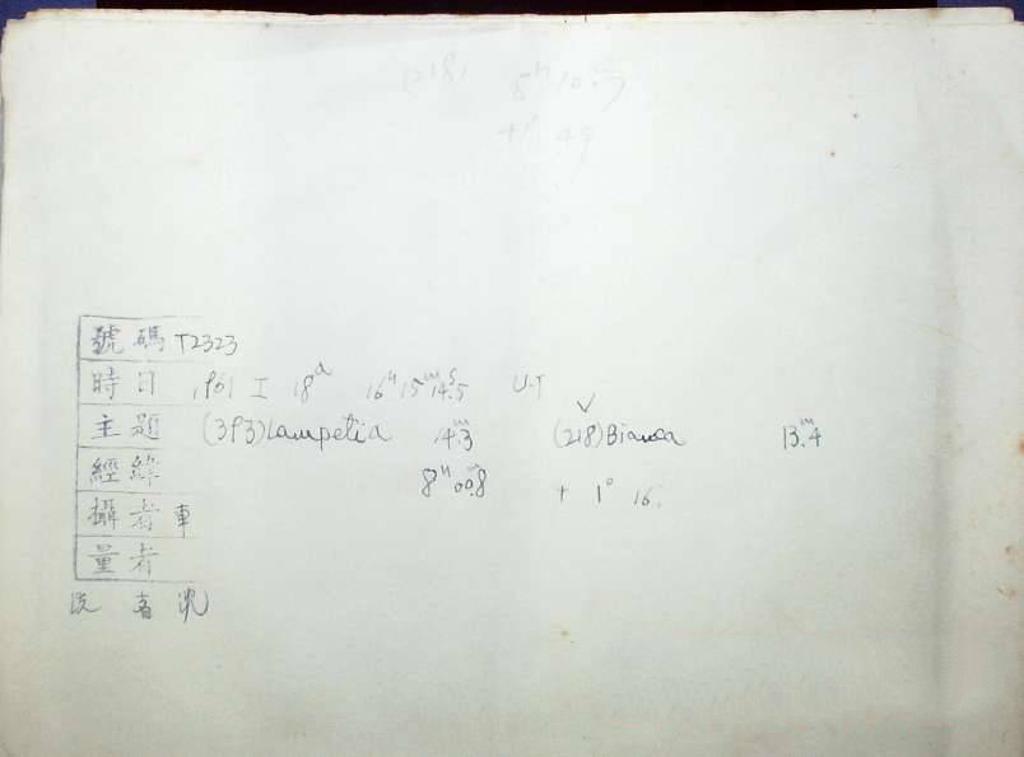 (218) 8ʰ 10.7
+1° 49
號碼 T2323
時日 1961 I 18ᵈ 16ʰ15ᵐ14ˢ.5 U.T
主題 (393)Lampetia 14ᵐ.3 (218)Bianca 13ᵐ.4
經緯 8ʰ00ᵐ.8 + 1° 16.
攝者 車
量者
洗者 沈